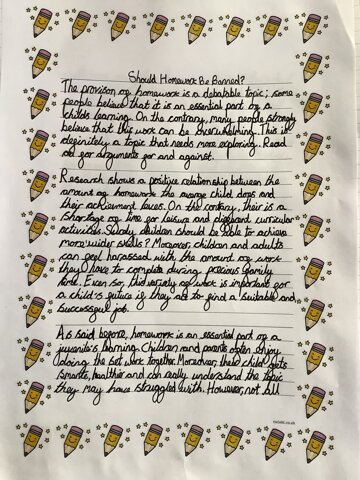 Should Homework Be Banned?
The provison of homework is a debatable topic; some
people believe that it is an essential part of a
childs learning. On the contrary, many people strongly
believe that this work can be overwhelming. This is
definitely a topic that needs more exploring. Read
on for arguments for and against.
Research shows a positive relationship between the
amount of homework the average child does and
their achievement laves. On the contrary, their is a
shortage of time for leisure and different curricular
activities. Surely children should be able to achieve
more wider skills? Moreover, children and adults
can feel harassed with the amount of work
they have to complete during precious family
time. Even so, this variety of work is important for
a child's future if they are to find a suitable and
successful job.
As said before, homework is an essential part of a
juvenile's learning. Children and parents often enjoy
doing the set work together. Moreover, the child gets
smarter, healthier and can really understand the topic
they may have struggled with. However, not all
twinkl.co.uk